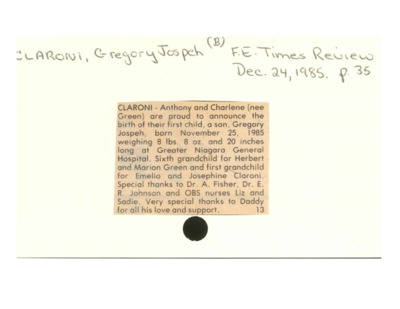 CLARONI, Gregory Jospeh (B) F.E. Times Review
Dec. 24, 1985. p 35
CLARONI - Anthony and Charlene (nee
Green) are proud to announce the
birth of their first child, a son, Gregory
Jospeh, born November 25, 1985
weighing 8 lbs. 8 oz. and 20 inches
long at Greater Niagara General
Hospital. Sixth grandchild for Herbert
and Marion Green and first grandchild
for Emelio and Josephine Claroni.
Special thanks to Dr. A. Fisher, Dr. E.
R. Johnson and OBS nurses Liz and
Sadie. Very special thanks to Daddy
for all his love and support. 13